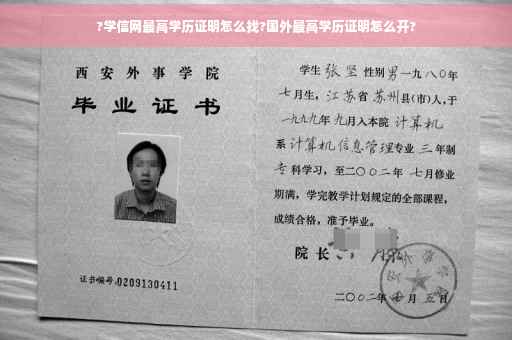 ?学信网最高学历证明怎么找?国外最高学历证明怎么开?
西安外事学院
毕业证书
证书编号:0209130411
学生 张坚 性别 男 一九八〇年
七月生, 江苏省 苏州县(市)人,于
一九九九年 九月入本院 计算机
系 计算机信息管理专业 三 年制
专科学习,至二〇〇二年 七月修业
期满,学完教学计划规定的全部课程,
成绩合格,准予毕业。
院长
二〇〇二年 月 五日